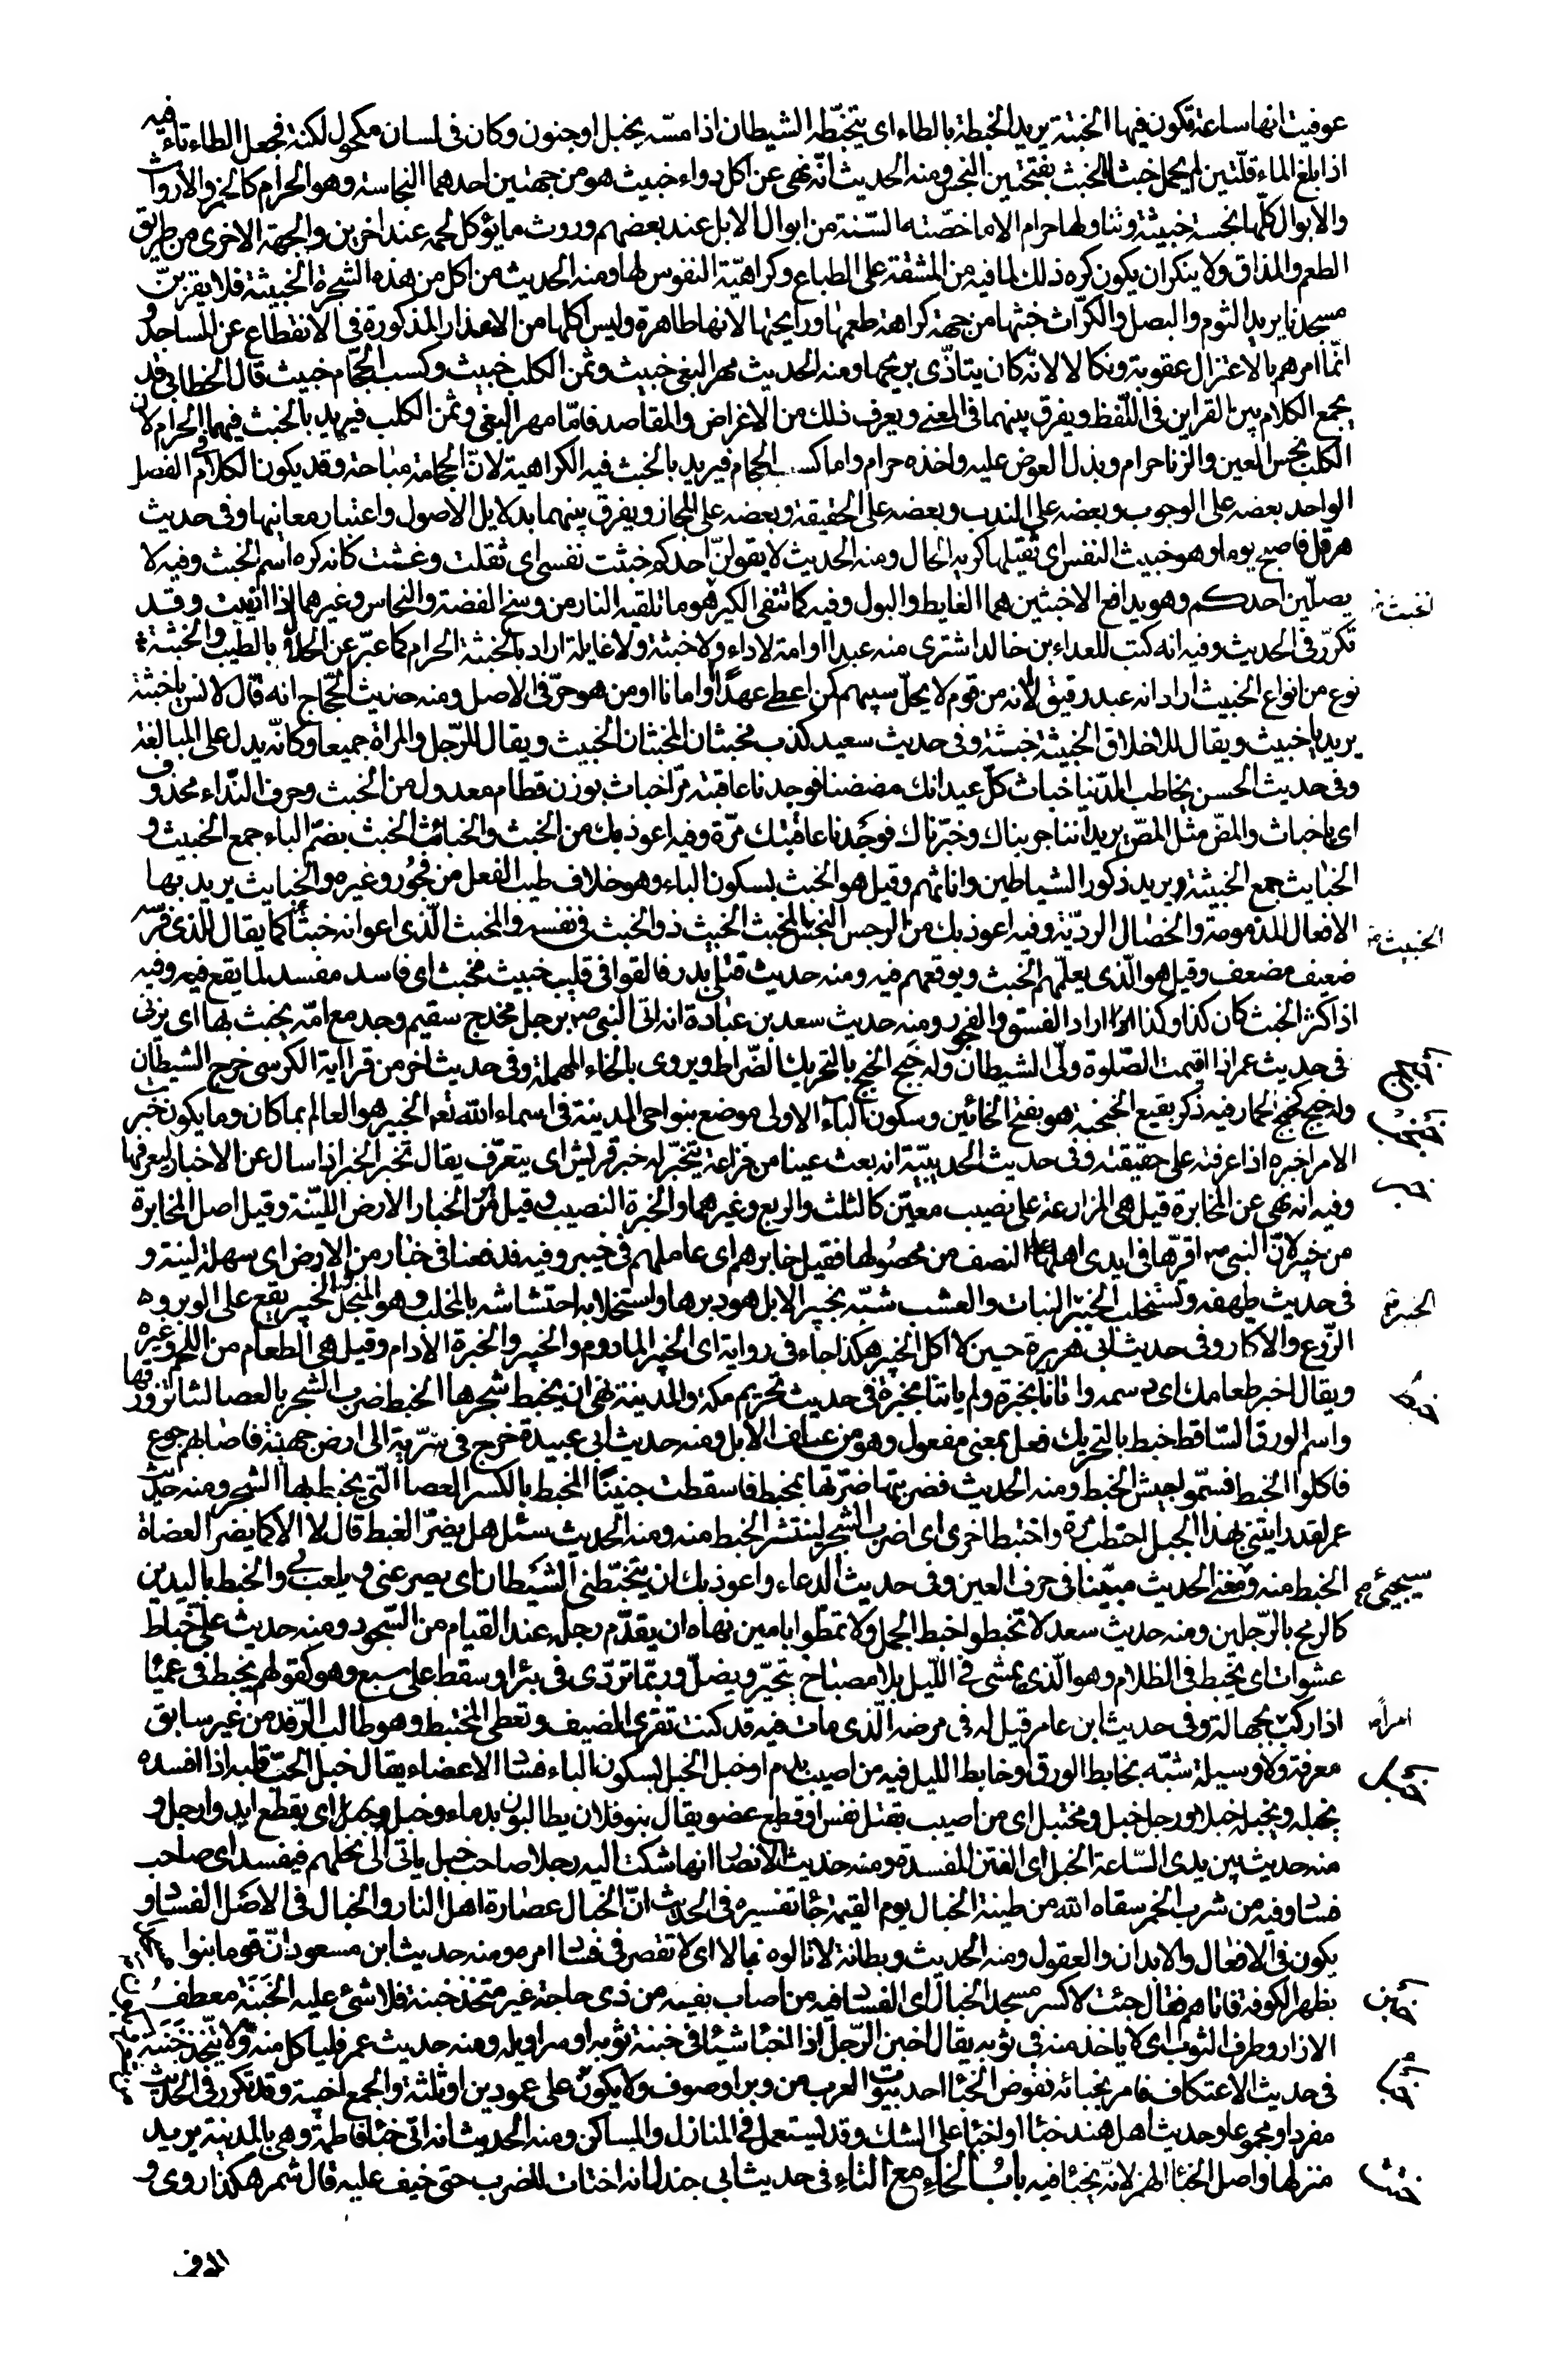 عوفيت انها ساعة تكون فيها الخبتة يريد الخبطة بالطاء اى يتخبّطه الشيطان اذا مسّه بخبل او جنون وكان فى لسان مكحول لكنة فجعل الطاء تاء فيه
اذا بلغ الماء قلّتين لم يحمل خبثا الخبث بفتحتين النجس ومنه الحديث انّه نهى عن اكل دواء خبيث هو من جهتين احدهما النجاسة وهو الحرام كالخمر والارواث
والابوال كلّها نجسة خبيثة وتناولها حرام الا ما خصّته السّنة من ابوال الابل عند بعضهم وروث ما يؤكل لحمه عند اخرين والجهة الاخرى من طريق
الطعم والمذاق ولا ينكر ان يكون كره ذلك لما فيه من المشقة على الطباع وكراهيّة النفوس لها ومنه الحديث من اكل من هذه الشجرة الخبيثة فلا يقربنّ
مسجدنا يريد الثوم والبصل والكرّاث خبثها من جهة كراهة طعمها ورايحتها لانها طاهرة وليس اكلها من الاعذار المذكورة فى الانقطاع عن المساجد و
انّما امرهم بالاعتزال عقوبة ونكالا لانّه كان يتاذّى بريحها ومنه الحديث مهر البغى خبيث وثمن الكلب خبيث وكسب الحجّام خبيث قال الخطابى قد
يجمع الكلام بين القراين فى اللّفظ ويفرق بينهما فى المعنى ويعرف ذلك من الاغراض والمقاصد فامّا مهر البغى وثمن الكلب فيريد بالخبث فيهما الحرام لان
الكلب نجس العين والزنا حرام وبذل العوض عليه واخذه حرام واما كسب الحجام فيريد بالخبث فيه الكراهية لانّ الحجامة مباحة وقد يكون الكلام فى الفصل
الواحد بعضه على الوجوب وبعضه على الندب وبعضه على الحقيقة وبعضه على المجاز ويفرق بينهما بدلايل الاصول واعتبار معانيها وفى حديث
هرقل فاصبح يوما وهو خبيث النفس اى ثقيلها كريه الحال ومنه الحديث لا يقولنّ احدكم خبثت نفسى اى ثقلت وغثت كانه كره اسم الخبث وفيه لا
يصلّين احدكم وهو يدافع الاخبثين هما الغايط والبول وفيه كما تنفى الكير هو ما تلقيه النار من وسخ الفضة والنحاس وغيرهما اذا اذيبت وقد
تكرّر فى الحديث وفيه انه كتب للعداء بن خالد اشترى منه عبدا او امة لا داء ولا خبثة ولا غايلة اراد بالخبثة الحرام كما عبّر عن الحلال بالطيّب والخبثة
نوع من انواع الخبيث اراد انه عبد رقيق لا انه من قوم لا يحلّ سبيهم كمن اعطى عهدًا او امانا او من هو حرّ فى الاصل ومنه حديث الحجّاج انه قال لانس يا خبثة
يريد يا خبيث ويقال للاخلاق الخبيثة خبثة وفى حديث سعيد كذب مخبثان المخبثان الخبيث ويقال للرّجل والمراة جميعا وكانّه يدل على المبالغة
وفى حديث الحسن يخاطب الدّنيا خباث كلّ عيدانك مضضنا فوجدنا عاقبته مرّا خباث بوزن قطام معدول من الخبث وحرف النّداء محذوف
اى يا خباث والمضّ مثل المصّ يريد انّنا جربناك وخبّرناك فوجدنا عاقبتك مرّة وفيه اعوذ بك من الخبث والخبائث الخبث بضمّ الباء جمع الخبيث و
الخبايث جمع الخبيثة يريد ذكور الشياطين واناثهم وقيل هو الخبث بسكون الباء وهو خلاف طيب الفعل من فجور وغيره والخبايث يريد بها
الافعال المذمومة والخصال الرديّة وفيه اعوذ بك من الرجس النجس الخبيث المخبث الخبيث ذو الخبث فى نفسه والمخبث الّذى اعوانه خبثاء كما يقال للذى فرسه
ضعيف مضعف وقيل هو الّذى يعلّمهم الخبث ويوقعهم فيه ومنه حديث قتلى بدر فالقوا فى قليب خبيث مخبث اى فاسد مفسد لما يقع فيه وفيه
اذا كثر الخبث كان كذا وكذا اراد الفسق والفجور ومنه حديث سعد بن عبادة انه اتى النبى برجل مخدج سقيم وجد مع امّة يخبث بها اى يزنى
فى حديث عمر اذا اقيمت الصّلوة ولّى الشيطان وله خبج الخبج بالتحريك الضّراط ويروى بالحاء المهملة وفى حديث اخر من قرا آية الكرسى خرج الشيطان
وله خبج كخبج الحمار فيه ذكر بقيع الخبخبة هو بفتح الخائين وسكون الباء الاولى موضع بنواحى المدينة فى اسماء الله تعه الخبير هو العالم بما كان وما يكون خبرت
الامر اخبره اذا عرفته على حقيقته وفى حديث الحديبيّة انه بعث عينا من خزاعة يتخبّر له خبر قريش اى يتعرّف يقال تخبر الخبر اذا سال عن الاخبار ليعرفها
وفيه انه نهى عن المخابرة قيل هى المزارعة على نصيب معيّن كالثلث والربع وغيرهما والخبرة النصيب وقيل من الخبار الارض الليّنة وقيل اصل المخابرة
من خيبر لانّ النبى اقرّها فى ايدى اهلها على النصف من محصولها فقيل خابرهم اى عاملهم فى خيبر وفيه فدفعنا فى خبار من الارض اى سهلة لينة و
فى حديث طهفه ونستخلب الخبير الخبير النبات والعشب شبّه بخبير الابل هو وبرها واستخلابه احتشاشه بالمخلب وهو المنجل الخبير يقع على الوبر و
الزّرع والاكار وفى حديث ابى هريرة حين لا اكل الخبير هكذا جاء فى رواية اى الخبر المادوم والخبير والخبرة الادام وقيل هى الطعام من اللحم وغيره
ويقال اخبر طعامك اى دسمه واتانا بخبزة ولم ياتنا بخبرة فى حديث تحريم مكة والمدينة نهى ان يخبط شجرها الخبط ضرب الشجر بالعصا ليتناثر ورقها
واسم الورق السّاقط خبط بالتحريك فعل بمعنى مفعول وهو من علف الابل ومنه حديث ابى عبيدة خرج فى سرّية الى ارض جهينة فاصابهم جوع
فاكلوا الخبط فسمّوا جيش الخبط ومنه الحديث فضربتها ضرّتها بمخبط فاسقطت جنينًا المخبط بالكسر العصا الّتى يخبط بها الشجر ومنه حديث
عمر لقد رايتنى بهذا الجبل احتطب مرّة واختبط اخرى اى اضرب الشجر لينتثر الخبط منه ومنه الحديث سئل هل يضرّ الغبط قال لا الا كما يضرّ العضاة
الخبط منه ومعنى الحديث مبيّنا فى حرف العين وفى حديث الدعاء واعوذ بك ان يتخبّطنى الشيطان اى يصرعنى ويلعب بى والخبط باليدين
كالرمح بالرّجلين ومنه حديث سعد لا تخبطوا خبط الجمل ولا تمطّوا بامين نهاه ان يقدّم رجله عند القيام من السّجود ومنه حديث علىّ خبّاط
عشوات اى يخبط فى الظلام وهو الّذى يمشى فى اللّيل بلا مصباح يتحيّر ويضلّ وربّما تردّى فى بئر او سقط على سبع وهو كقولهم يخبط فى عميا
اذا ركب بجهالة وفى حديث ابن عامر قيل له فى مرضه الّذى مات فيه قد كنت تقرى المضيف وتعطى المختبط وهو طالب الرّفد من غير سابق
معرفة ولا وسيلة شبّه بخابط الورق او خابط الليل فيه من اصيب بدم او خبل الخبل بسكون الباء فساد الاعضاء يقال خبل الحبّ قلبه اذا افسده
يخبله ويخبله خبلا ورجل خبل ومختبل اى من اصيب بقتل نفس او قطع عضو يقال بنو فلان يطالبون بدماء وخبل اى بقطع ايد وارجل و
منه حديث بين يدى السّاعة الخبل اى الفتن المفسدة ومنه حديث الانصار انها شكت اليه رجلا صاحب خبل ياتى الى نخلهم فيفسد اى صاحب
فساد وفيه من شرب الخمر سقاه الله من طينة الخبال يوم القيمة جاء تفسيره فى الحديث انّ الخبال عصارة اهل النار والخبال فى الاصل الفساد و
يكون فى الافعال والابدان والعقول ومنه الحديث وبطانة لا تالوه خبالا اى لا تقصر فى فساد امره ومنه حديث ابن مسعود انّ قوما بنوا
بظهر الكوفة فاتاهم فقال جئت لاكسر مسجد الخبال اى الفساد فيه من اصاب بفيه من ذى حاجة غير متخذ خبنة فلا شئ عليه الخبنة معطف
الازار وطرف الثوب اى لا ياخذ منه فى ثوبه يقال اخبن الرّجل اذا خبا شيئا فى خبنة ثوبه او سراويله ومنه حديث عمر فليأكل منه ولا يتّخذ خبنة
فى حديث الاعتكاف فامر بخبائه نقوض الخبا احد بيوت العرب من وبر او صوف ولا يكون على عمودين او ثلثة والجمع اخبية وقد تكرر فى الحديث
مفردا ومجموعا وحديث اهل هند خبا او اخبا على الشك وقد يستعمل فى المنازل والمساكن ومنه الحديث انه اتى خبا فاطمة وهى بالمدينة يريد
منزلها واصل الخبا الهمز لانّه يختبا فيه باب الخاء مع التاء فى حديث ابى جندل انه اختات للضرب حتى خيف عليه قال شمر هكذا روى و